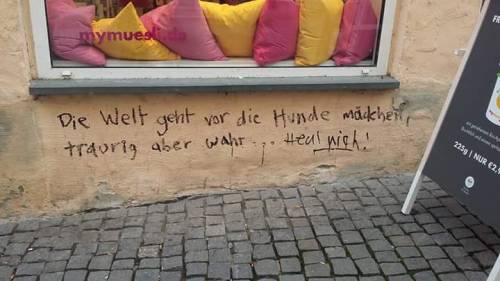 mymuesli.de
Die Welt geht vor die Hunde mädchen,
traurig aber wahr... Heul nich!
225g | NUR €2,9